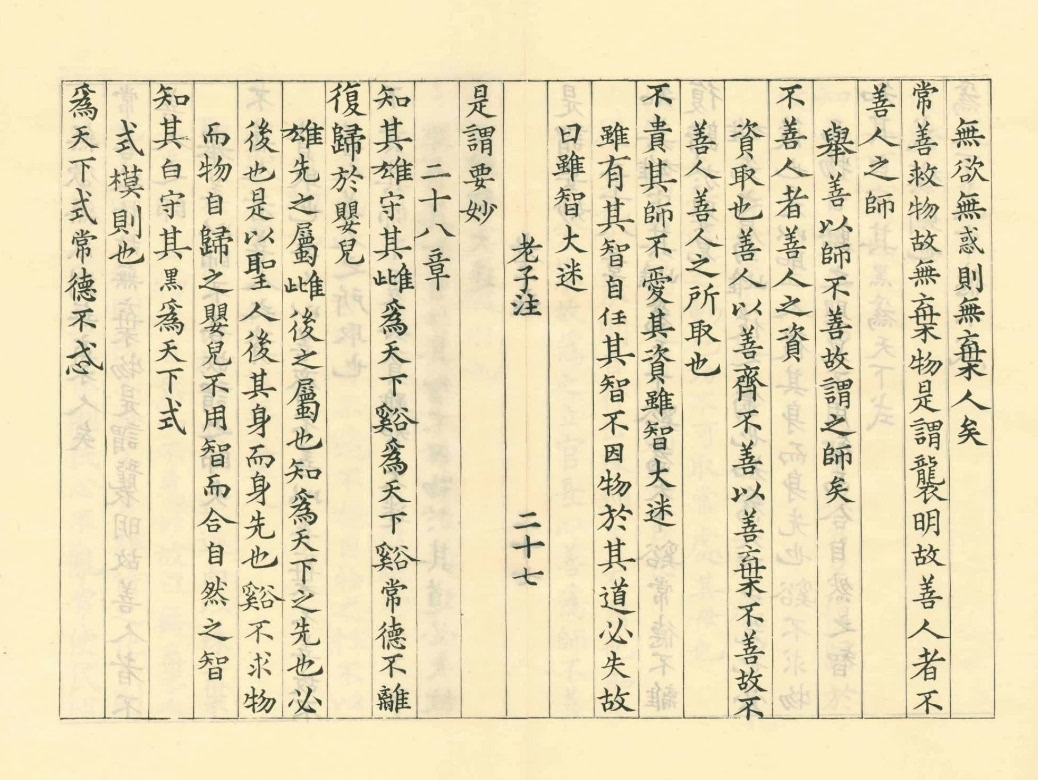 無欲無惑則無棄人矣
常善救物故無棄物是謂襲明故善人者不
善人之師
舉善以師不善故謂之師矣
不善人者善人之資
資取也善人以善齊不善以善棄不善故不
善人善人之所取也
不貴其師不愛其資雖智大迷
雖有其智自任其智不因物於其道必失故
曰雖智大迷
老子注 二十七
是謂要妙
二十八章
知其雄守其雌為天下谿為天下谿常德不離
復歸於嬰兒
雄先之屬雌後之屬也知為天下之先也必
後也是以聖人後其身而身先也谿不求物
而物自歸之嬰兒不用智而合自然之智
知其白守其黑為天下式
式模則也
為天下式常德不忒